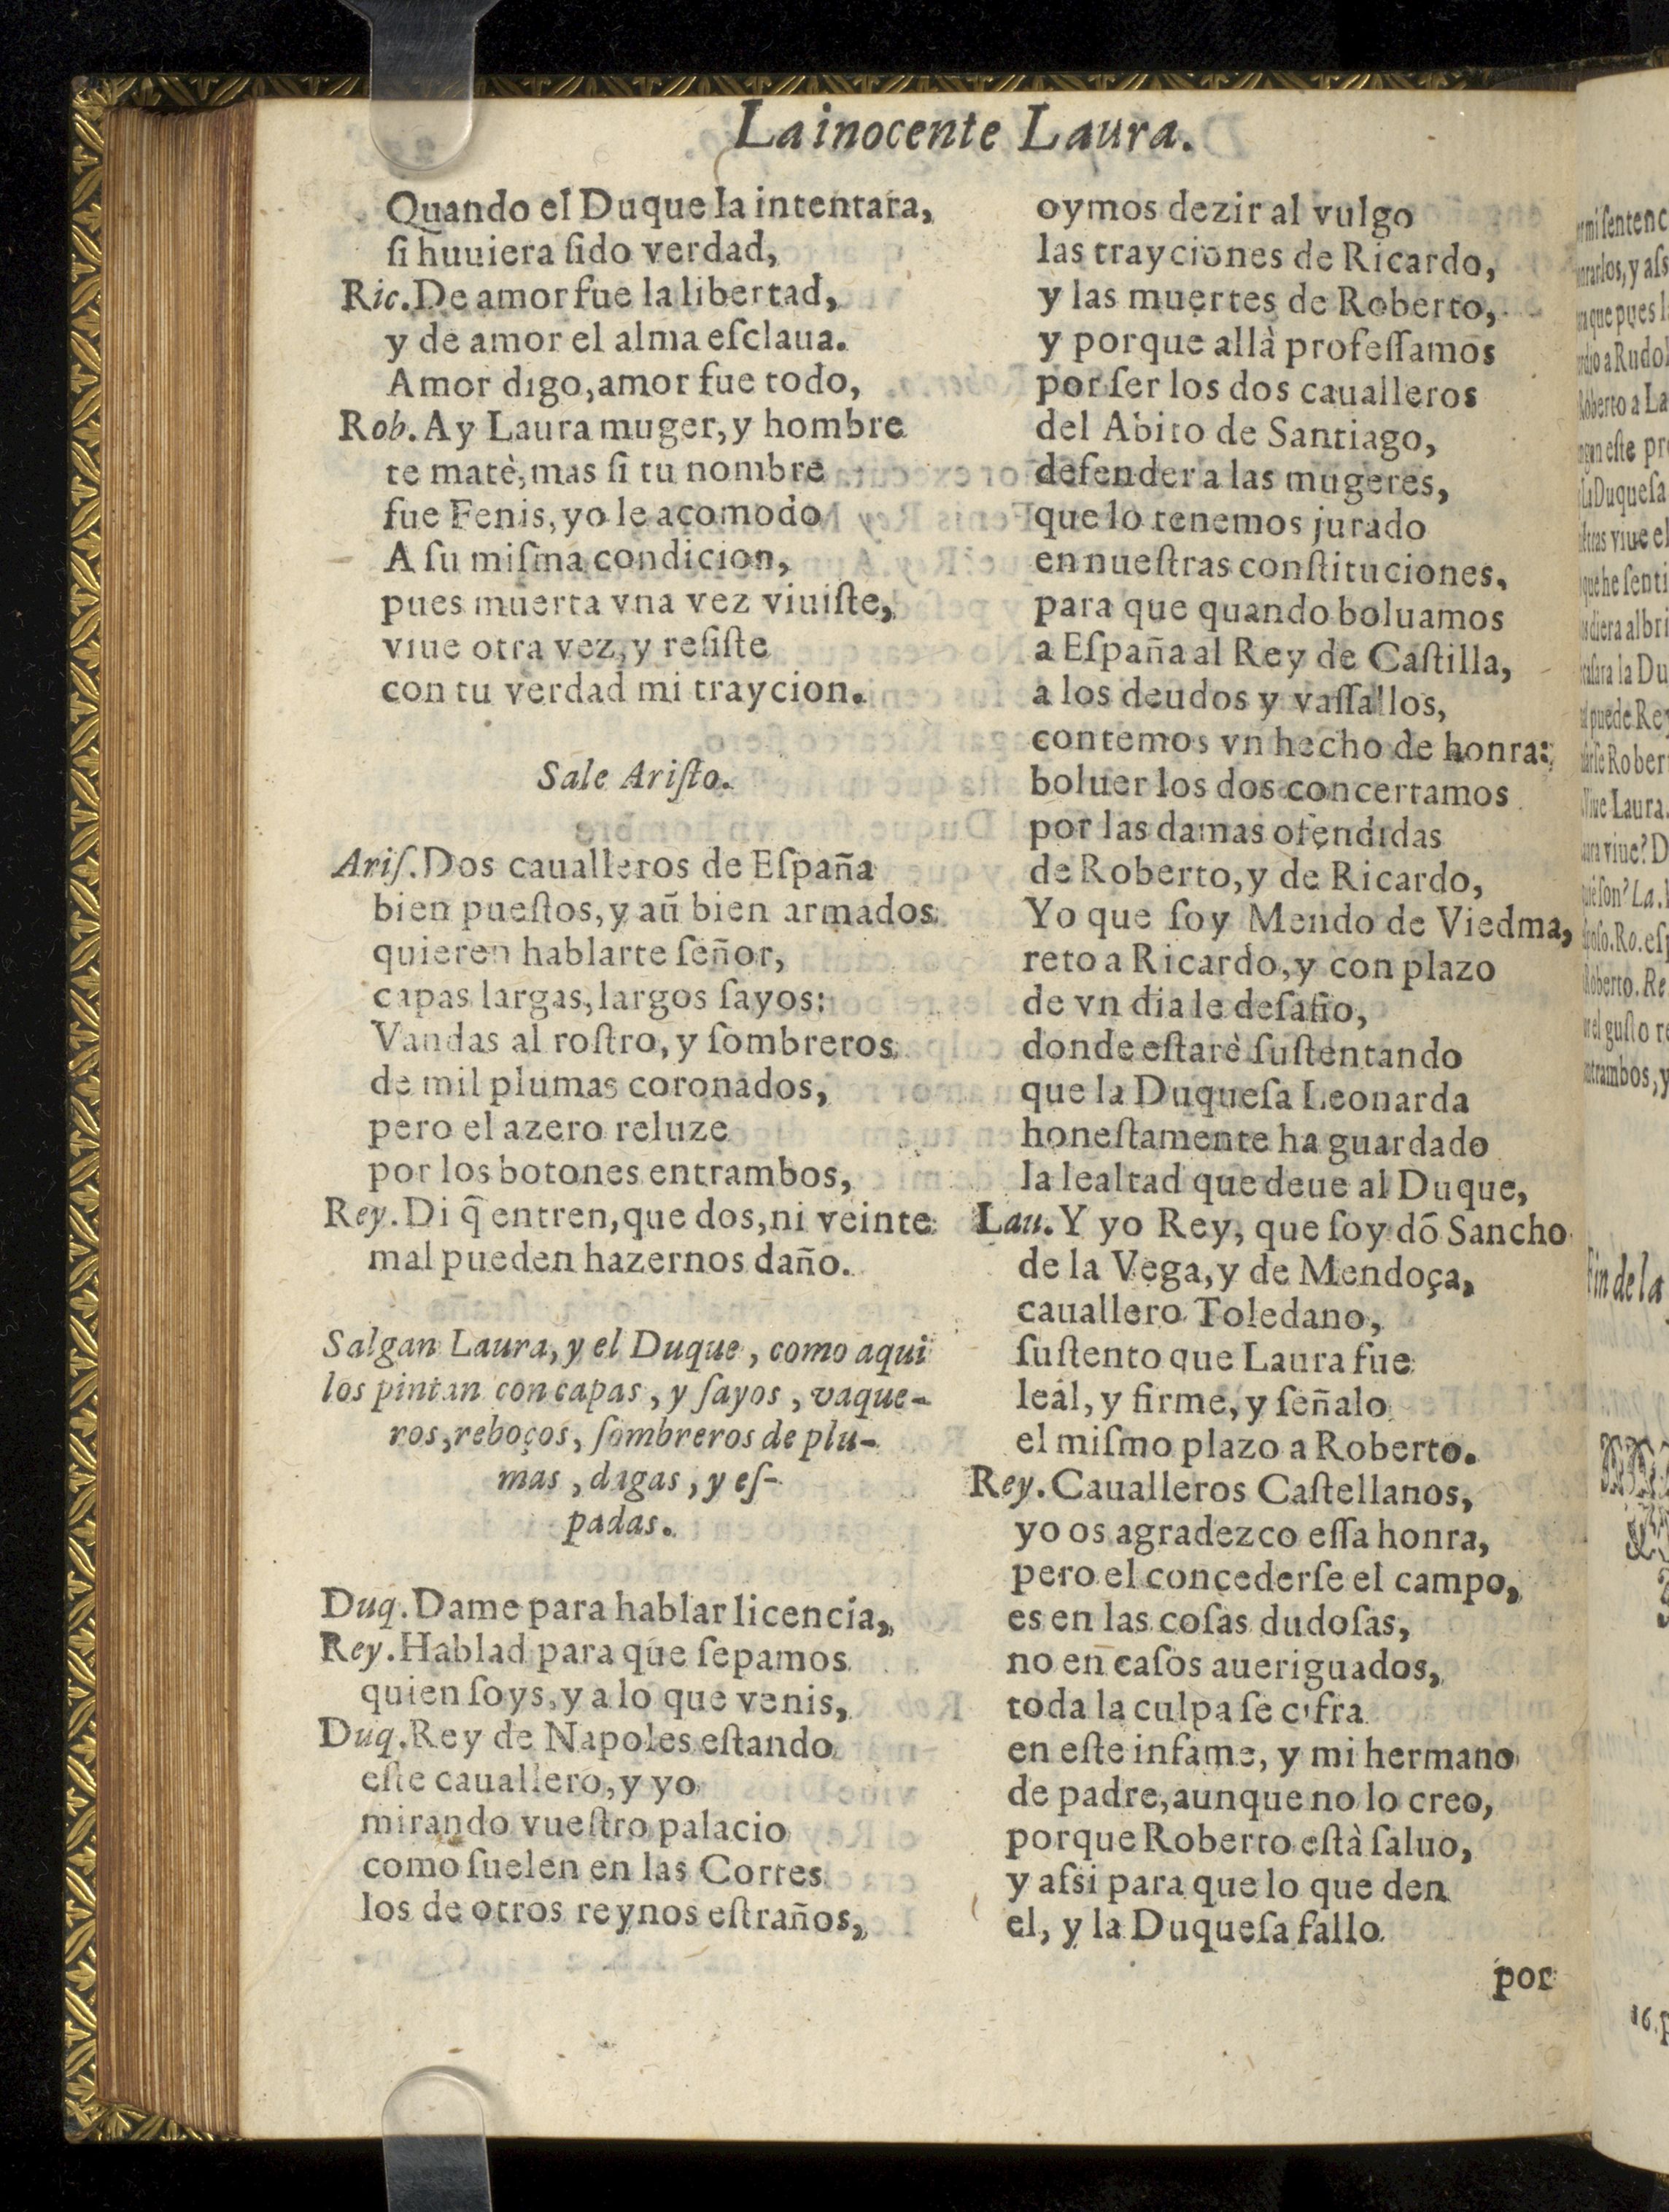 La inocente Laura.
Quando el Duque la intentara,
ſi huuiera ſido verdad,
Ric. De amor fue la libertad,
y de amor el alma eſclaua.
Amor digo, amor fue todo,
Rob. Ay Laura muger, y hombre
te matè, mas ſi tu nombre
fue Fenis, yo le acomodo
A ſu miſma condicion,
pues muerta vna vez viuiſte,
viue otra vez, y reſiſte
con tu verdad mi traycion.
Sale Ariſto.
Ariſ. Dos caualleros de Eſpaña
bien pueſtos, y aũ bien armados
quieren hablarte ſeñor,
capas largas, largos ſayos:
Vandas al roſtro, y ſombreros
de mil plumas coronados,
pero el azero reluze
por los botones entrambos,
Rey. Di q̃ entren, que dos, ni veinte
mal pueden hazernos daño.
Salgan Laura, y el Duque, como aqui
los pintan con capas, y ſayos, vaque-
ros, reboços, ſombreros de plu-
mas, dagas, y eſ-
padas.
Duq. Dame para hablar licencia,
Rey. Hablad para que ſepamos
quien ſoys, y a lo que venis,
Duq. Rey de Napoles eſtando
eſte cauallero, y yo
mirando vueſtro palacio
como ſuelen en las Cortes
los de otros reynos eſtraños,
oymos dezir al vulgo
las trayciones de Ricardo,
y las muertes de Roberto,
y porque allà profeſſamos
por ſer los dos caualleros
del Abito de Santiago,
defender a las mugeres,
que lo tenemos jurado
en nueſtras conſtituciones,
para que quando boluamos
a Eſpaña al Rey de Caſtilla,
a los deudos y vaſſallos,
contemos vn hecho de honra:
boluer los dos concertamos
por las damas ofendidas
de Roberto, y de Ricardo,
Yo que ſoy Mendo de Viedma,
reto a Ricardo, y con plazo
de vn dia le deſafio,
donde eſtarè ſuſtentando
que la Duqueſa Leonarda
honeſtamente ha guardado
la lealtad que deue al Duque,
Lau. Y yo Rey, que ſoy dõ Sancho
de la Vega, y de Mendoça,
cauallero Toledano,
ſuſtento que Laura fue
leal, y firme, y ſeñalo
el miſmo plazo a Roberto.
Rey. Caualleros Caſtellanos,
yo os agradezco eſſa honra,
pero el concederſe el campo,
es en las coſas dudoſas,
no en caſos aueriguados,
toda la culpa ſe cifra
en eſte infame, y mi hermano
de padre, aunque no lo creo,
porque Roberto eſtà ſaluo,
y aſsi para que lo que den
el, y la Duqueſa fallo
por